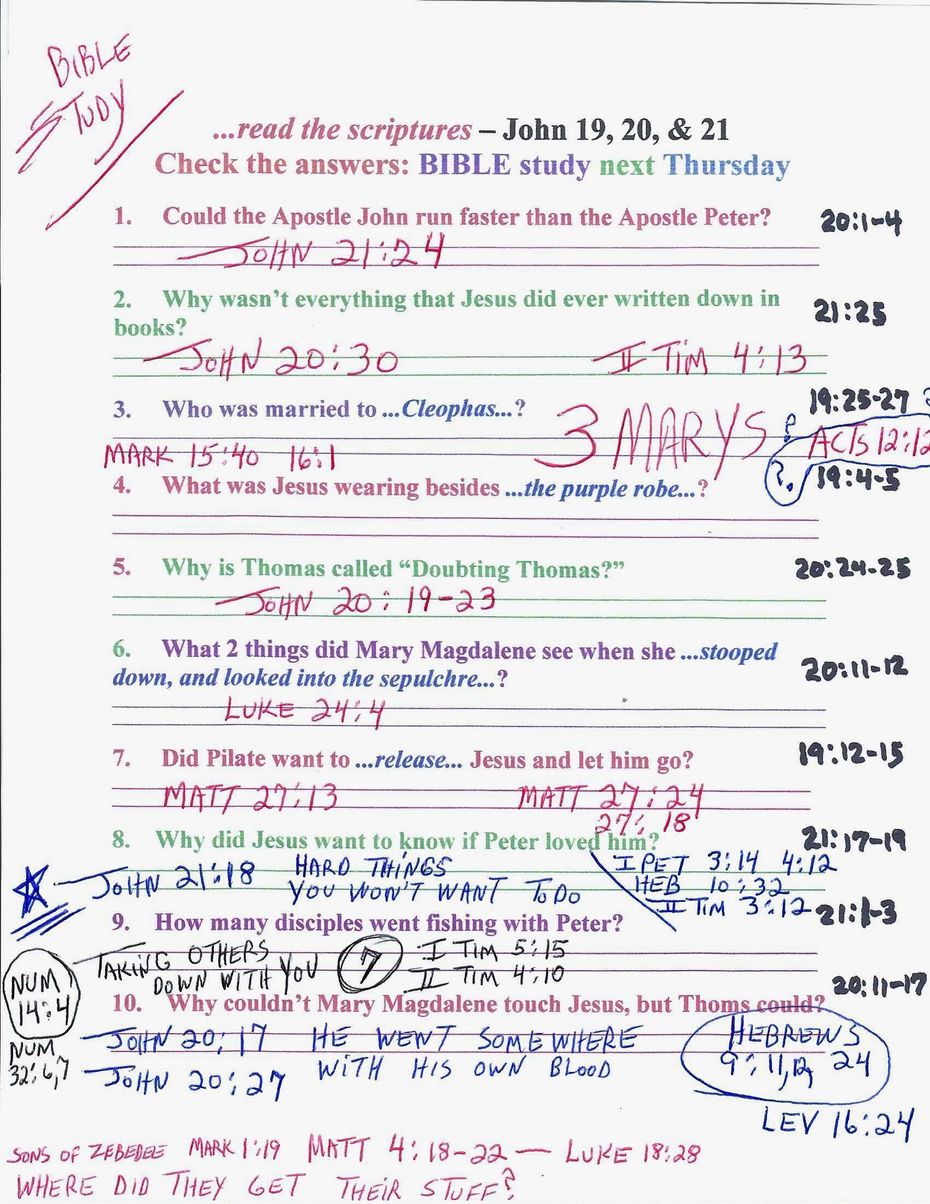 BIBLE
STUDY
...read the scriptures – John 19, 20, & 21
Check the answers: BIBLE study next Thursday
1. Could the Apostle John run faster than the Apostle Peter? 20:1-4
JOHN 21:24
2. Why wasn't everything that Jesus did ever written down in
books? 21:25
JOHN 20:30 II TIM 4:13
3. Who was married to ...Cleophas...? 19:25-27 ?
3 MARYS ? ACTS 12:12
MARK 15:40 16:1
4. What was Jesus wearing besides ...the purple robe...? ? 19:4-5
5. Why is Thomas called “Doubting Thomas?” 20:24-25
JOHN 20:19-23
6. What 2 things did Mary Magdalene see when she ...stooped
down, and looked into the sepulchre...? 20:11-12
LUKE 24:4
7. Did Pilate want to ...release... Jesus and let him go? 19:12-15
MATT 27:13 MATT 27:24
27:18
8. Why did Jesus want to know if Peter loved him? 21:17-19
JOHN 21:18 HARD THINGS I PET 3:14 4:12
YOU WON'T WANT TO DO HEB 10:32
II TIM 3:12
9. How many disciples went fishing with Peter? 21:1-3
TAKING OTHERS 7 I TIM 5:15
DOWN WITH YOU II TIM 4:10
NUM
14:4
10. Why couldn't Mary Magdalene touch Jesus, but Thoms could? 20:11-17
NUM
32:6,7
JOHN 20:17 HE WENT SOMEWHERE HEBREWS
JOHN 20:27 WITH HIS OWN BLOOD 9:11,12, 24
LEV 16:24
SONS OF ZEBEDEE MARK 1:19 MATT 4:18-22 — LUKE 18:28
WHERE DID THEY GET THEIR STUFF?